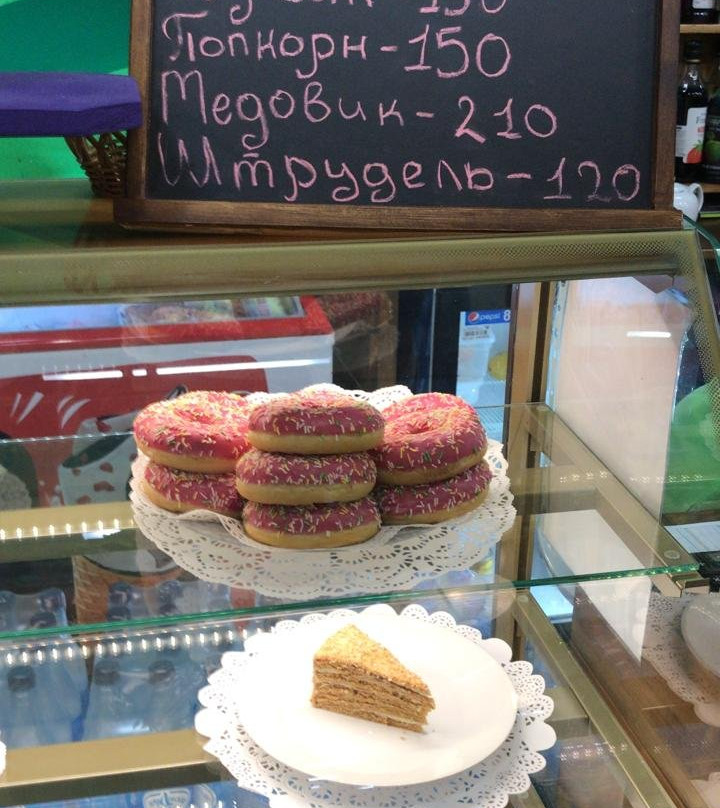 Попкорн-150
Медовик-210
Штрудель-120
pepsi 8